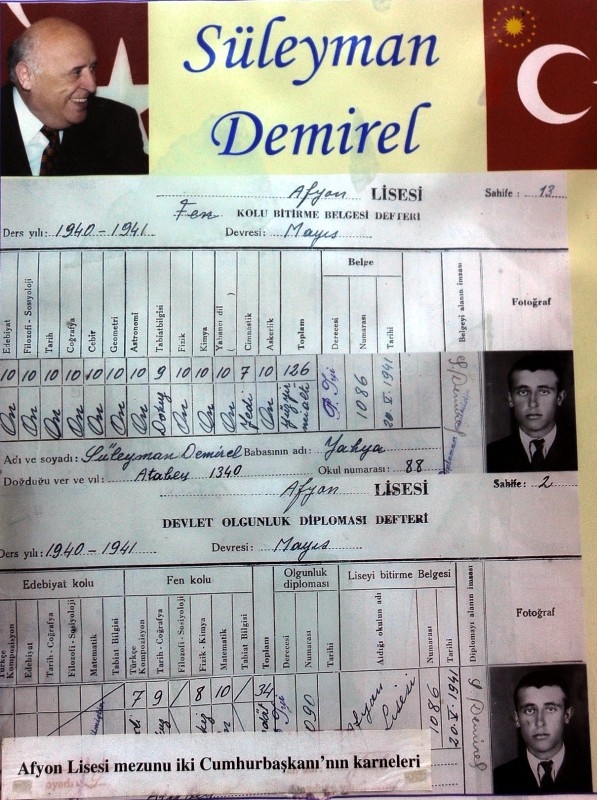 Süleyman
Demirel
Afyon LİSESİ Sahife: 13
Fen KOLU BİTİRME BELGESİ DEFTERİ
Ders yılı: 1940-1941 Devresi: Mayıs
Belge
Edebiyat Filozofi-Sosyoloji Tarih Coğrafya Cebir Geometri Astronomi Tabiatbilgisi Fizik Kimya Yabancı dil ( ) Cimnastik Askerlik Toplam Derecesi Numarası Tarihi Belgeyi alanın imzası Fotoğraf
10 10 10 10 10 10 10 9 10 10 10 7 10 126 P. İyi 1086 20 V 1941
On On On On On On On Dokuz On On On Yedi On
Adı ve soyadı: Süleyman Demirel Babasının adı: Yahya
Doğduğu yer ve yıl: Atabey 1340 Okul numarası: 88
Afyon LİSESİ Sahife: 2
DEVLET OLGUNLUK DİPLOMASI DEFTERİ
Ders yılı: 1940-1941 Devresi: Mayıs
Edebiyat kolu Fen kolu Olgunluk diploması Liseyi bitirme Belgesi
Türkçe Kompozisyon Edebiyat Tarih-Coğrafya Filozofi-Sosyoloji Matematik Tabiat Bilgisi Türkçe Kompozisyon Tarih-Coğrafya Filozofi-Sosyoloji Fizik-Kimya Matematik Tabiat Bilgisi Toplam Derecesi Numarası Tarihi Aldığı okulun adı Numarası Tarihi Diplomayı alanın imzası Fotoğraf
7 9 / 8 10 / 34 Afyon Lisesi 1086 S Demirel
Afyon Lisesi mezunu iki Cumhurbaşkanı'nın karneleri